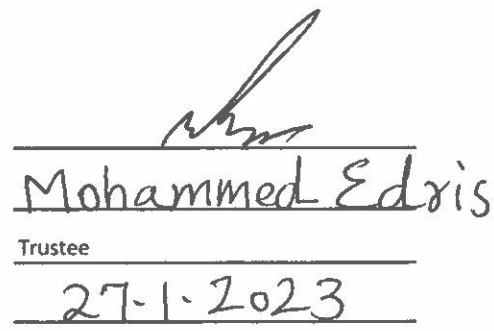 Mohammed Edris
Trustee
27-1-2023